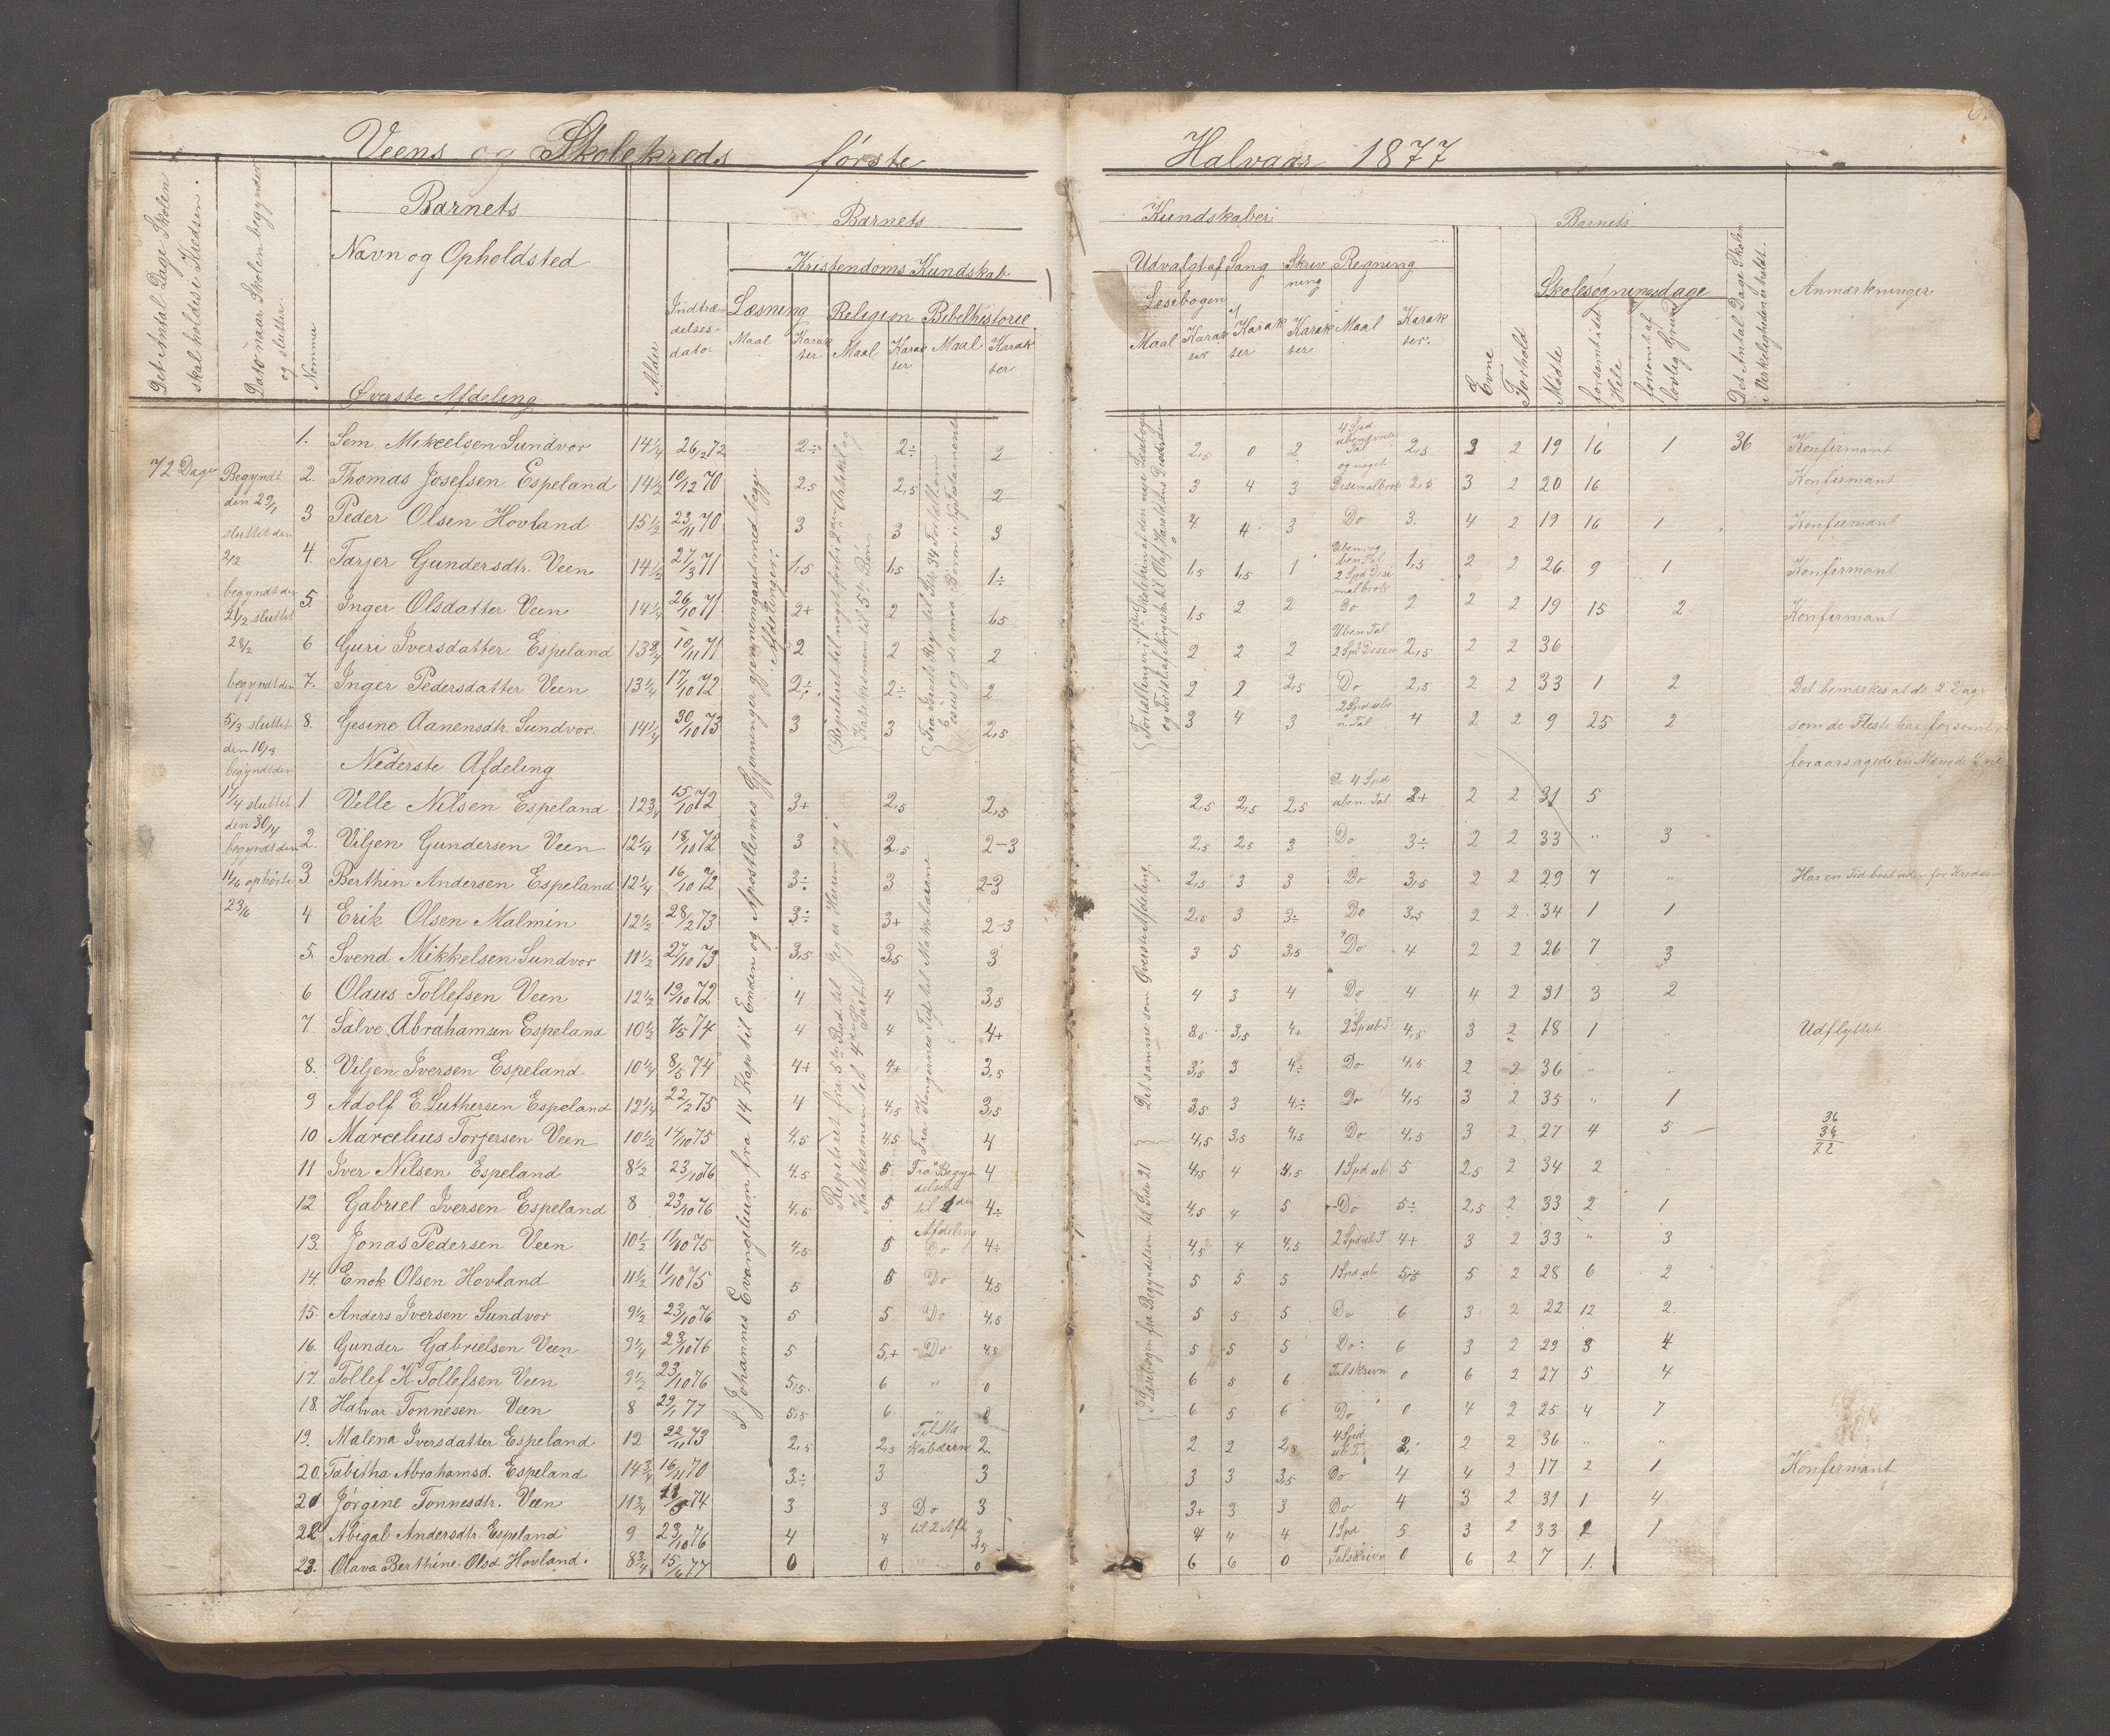 Veens og Skolekreds første Halvaar 1877
Det Antal Dage Skolen skal holdes i Kredsen.
Dato naar Skolen begynder og slutter.
Nommer
Barnets
Navn og Opholdsted
Øverste Afdeling
Alder
Indtrædelsesdato.
Barnets Kundskaber
Kristendoms Kundskab
Læsning Religion Bibelhistorie
Maal Karakter Maal Karakter Maal Karakter
Udvalgt af Læsebogen Sang Skrivning Regning
Maal Karakter Karakter Karakter Maal Karakter.
Evne
Forhold
Barnets
Skolesøgningsdage
Mødte
forsømt i det Hele
forsømt af lovlig Grund
Det Antal Dage Skolen i Virkeligheden er holdt.
Anmærkninger
72 Dage
Begyndt den 29/1 sluttet den 2/2
begyndt den 21/2 sluttet 28/2
begyndt den 5/3 sluttet den 10/3
begyndt den 11/4 sluttet den 30/4
begyndt den 11/6 ophørte 23/6
S. Johannes Evangelium fra 14 Kap til Enden og Apostlernes Gjerninger gjennemgaaet med begge Afdelinger.
1. Sem. Mikcelsen Sundvor 14 1/4 26/2 72 2÷ 2÷ 2 2,5 0 2 2,5 2 2 19 16 1 36 Konfirmant
2. Thomas Josefsen Espeland 14 1/2 10/12 70 2,5 2,5 2 3 4 3 Desimalbrok 2,5 3 2 20 16 " Konfirmant
3 Peder Olsen Hovland 15 1/2 23/11 70 3 3 3 4 4 3 Do 3. 4 2 19 16 1 Konfirmant
4. Tarjer Gundersdtr. Veen 14 1/2 27/3 71 1,5 1,5 1÷ 1,5 1,5 1 1,5 2 2 26 9 1 Konfirmant
5. Inger Olsdatter Veen 14 1/4 26/10 71 2+ 2 1,5 1,5 2 2 Do 2 2 2 19 15 2 Konfirmant
6 Guri Iversdatter Espeland 13 3/4 10/11 71 2 2 2 2 2 2 2,5 2 2 36
7. Inger Pedersdatter Veen 13 1/4 17/10 72 2÷ 2÷ 2 2 2 2,5 Do 2,5 2 2 33 1 2 Det bemærkes at de 2 Dage
8. Gesine Aanensdtr. Sundvor. 14 1/4 30/10 73 3 3 2,5 3 4 3 4 2 2 9 25 2 som de Fleste har forsømt
Nederste Afdeling
1. Velle Nilsen Espeland 12 3/4 15/10 72 3+ 2,5 2,5 2,5 2,5 2,5 3+ 2 2 31 5
2. Viljen Gundersen Veen 12 1/4 18/10 72 3 2,5 2-3 2,5 2,5 3 Do 3÷ 2 2 33 " 3
3. Berthin Andersen Espeland 12 1/4 16/10 72 3÷ 3 2-3 2,5 3 3 Do 3,5 2 2 29 7 " Har en Tid boet uden for Kredsen
4 Erik Olsen Malmin 12 1/2 28/2 73 3÷ 3+ 2-3 2,5 3 3÷ Do 3,5 2 2 34 1 1
5. Svend Mikkelsen Sundvor 11 1/2 27/10 73 3,5 3,5 3 3 5 3,5 Do 4 2 2 26 7 3
6 Olaus Tollefsen Veen 12 1/2 19/10 72 4 4 3,5 4 3 4 Do 4 4 2 31 3 2
7. Salve Abrahamsen Espeland 10 1/2 7/5 74 4 4 4+ 3,5 3,5 4+ 2 Spd ub T 4,5 3 2 18 1 " Udflyttet
8. Viljen Iversen Espeland 10 1/4 8/5 74 4+ 4+ 3,5 3,5 3 4÷ Do 4,5 2 2 36 " "
9 Adolf E. Luthersen Espeland 12 1/4 22/2 75 4 4,5 3,5 3,5 3 4÷ Do 4,5 3 2 35 " 1
10 Marcelius Torjersen Veen 10 1/2 14/10 75 4,5 4,5 4 4,5 3,5 4,5 Do 4,5 3 2 27 4 5
36
36
72
11 Iver Nilsen Espeland 8 1/2 23/10 76 4,5 5 4 4,5 4 4,5 1 Spd ub 5 2,5 2 34 2 "
12 Gabriel Iversen Espeland 8 23/10 76 4,5 5 4÷ 4,5 4 5 Do 5÷ 2,5 2 33 2 1
13. Jonas Pedersen Veen 10 1/2 11/10 75 4,5 5 Do 4÷ 4,5 4 4,5 2 Spd ub T 4+ 3 2 33 " 3
14. Enok Olsen Hovland 11 1/2 11/10 75 5 5 Do 4,5 5 5 5 1 Spd ub 5,5 5 2 28 6 2
15. Anders Iversen Sundvor 9 1/2 23/10 76 5 5 Do 4,5 5 5 5 Do 6 3 2 22 12 2
16. Gunder Gabrielsen Veen 9 1/4 23/10 76 5 5+ Do 4,5 5 5 5 Do 6 3 2 29 3 4
17. Tollef K. Tollefsen Veen 9 1/2 23/10 76 5,5 6 " 0 6 5 6 Talskrivn 0 6 2 27 5 4
18. Halvar Tonnesen Veen 8 29/1 77 5,5 6 " 0 6 5 6 Do 0 4 2 25 4 7
19. Malena Iversdatter Espeland 12 22/11 73 2,5 2,5 Til Makabæern 2 2 2 2,5 4 Spd ub T. 2 2 2 36 " "
20. Tabitha Abrahamsd. Espeland 14 3/4 16/11 70 3÷ 3 3 3 3 3,5 Do 4 4 2 17 2 1 Konfirmant
21 Jørgine Tonnesdtr. Veen 11 3/4 74 3 3 Do 3 3+ 3 3 Do 4 3 2 31 1 4
22 Abigal Andersdtr. Espeland 9 23/10 76 4 4 til 2 Afd 3,5 4 4 4 1 Spd 5 3 2 33 2 1
23. Olava Berthine Olsd. Hovland. 8 3/4 15/6 77 0 0 0 6 6 0 Talskrivn 0 6 2 7 1.